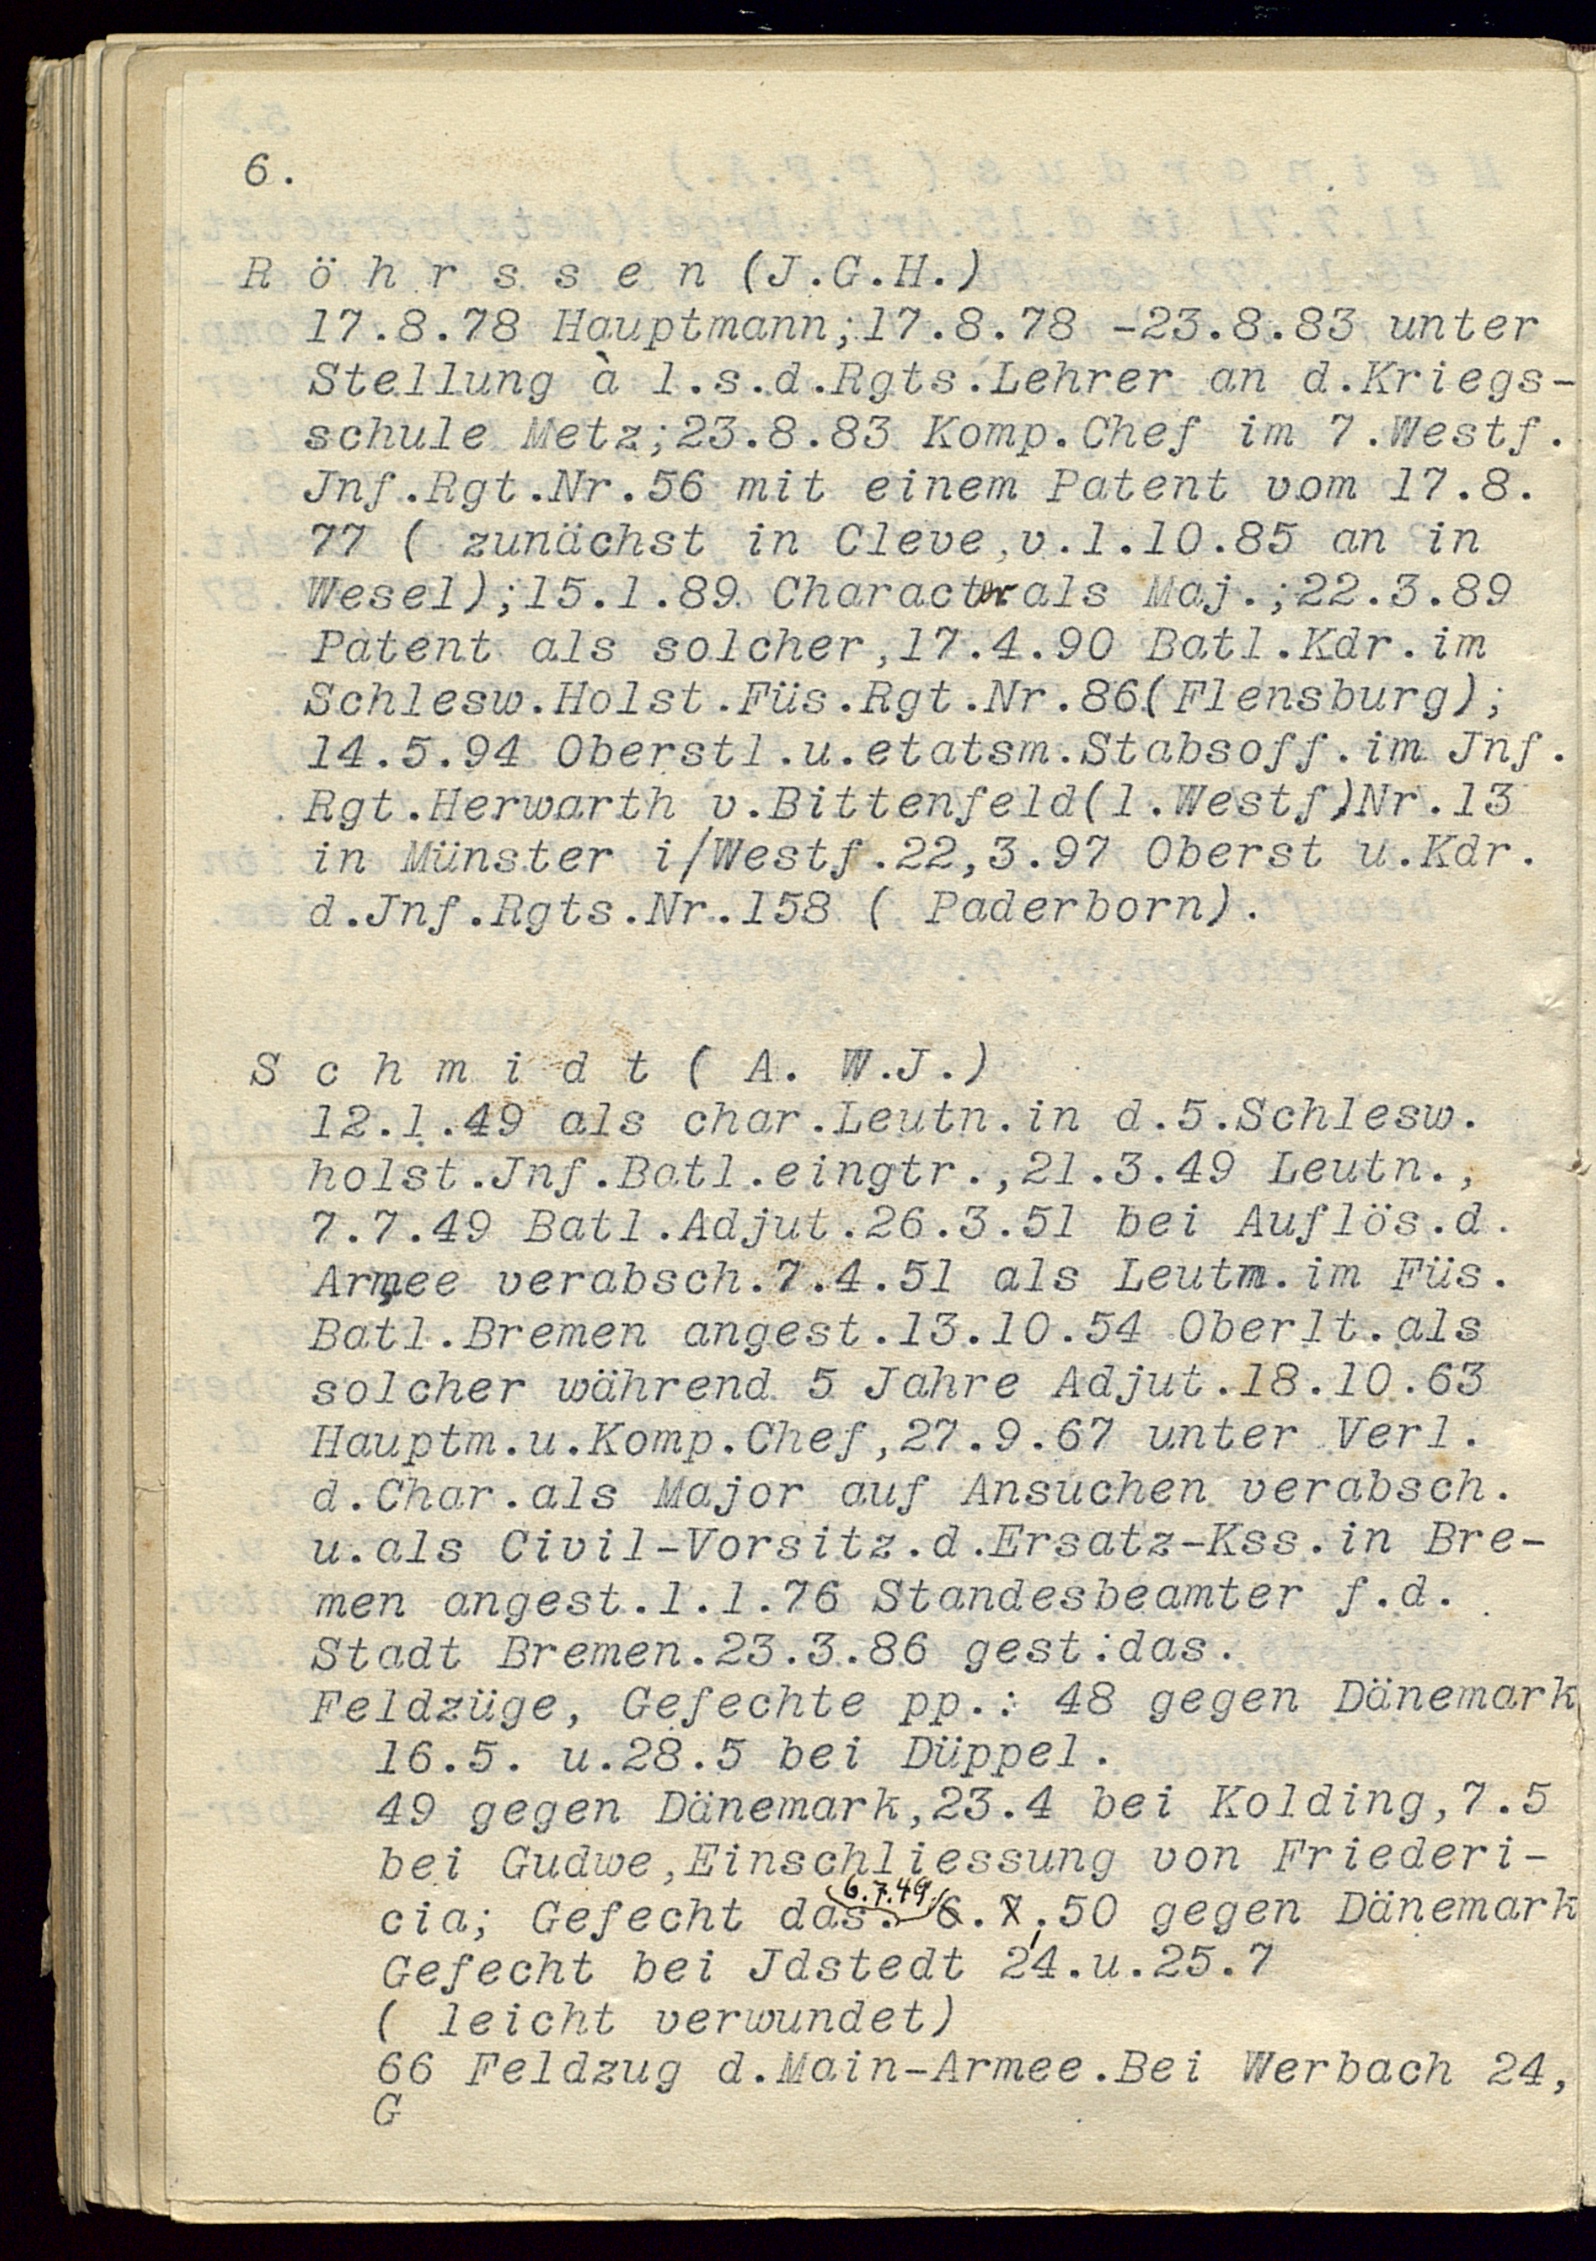 6.
R ö h r s s e n (J.G.H.)
17.8.78 Hauptmann;17.8.78 -23.8.83 unter
Stellung à l.s.d.Rgts.Lehrer an d.Kriegs-
schule Metz;23.8.83 Komp.Chef im 7.Westf.
Jnf.Rgt.Nr.56 mit einem Patent vom 17.8.
77 ( zunächst in Cleve,v.1.10.85 an in
Wesel);15.1.89 Character als Maj.;22.3.89
Patent als solcher,17.4.90 Batl.Kdr.im
Schlesw.Holst.Füs.Rgt.Nr.86(Flensburg);
14.5.94 Oberstl.u.etatsm.Stabsoff.im Jnf.
Rgt.Herwarth v.Bittenfeld(1.Westf)Nr.13
in Münster i/Westf.22,3.97 Oberst u.Kdr.
d.Jnf.Rgts.Nr.158 ( Paderborn).
S c h m i d t ( A. W.J.)
12.1.49 als char.Leutn.in d.5.Schlesw.
holst.Jnf.Batl.eingtr.,21.3.49 Leutn.,
7.7.49 Batl.Adjut.26.3.51 bei Auflös.d.
Armee verabsch.7.4.51 als Leutm.im Füs.
Batl.Bremen angest.13.10.54 Oberlt.als
solcher während 5 Jahre Adjut.18.10.63
Hauptm.u.Komp.Chef,27.9.67 unter Verl.
d.Char.als Major auf Ansuchen verabsch.
u.als Civil-Vorsitz.d.Ersatz-Kss.in Bre-
men angest.1.1.76 Standesbeamter f.d.
Stadt Bremen.23.3.86 gest:das.
Feldzüge, Gefechte pp.: 48 gegen Dänemark
16.5. u.28.5 bei Düppel.
49 gegen Dänemark,23.4 bei Kolding,7.5
bei Gudwe,Einschliessung von Friederi-
6.7.49.
cia; Gefecht das. 6.7.50 gegen Dänemark
Gefecht bei Jdstedt 24.u.25.7
( leicht verwundet)
66 Feldzug d.Main-Armee.Bei Werbach 24,
G